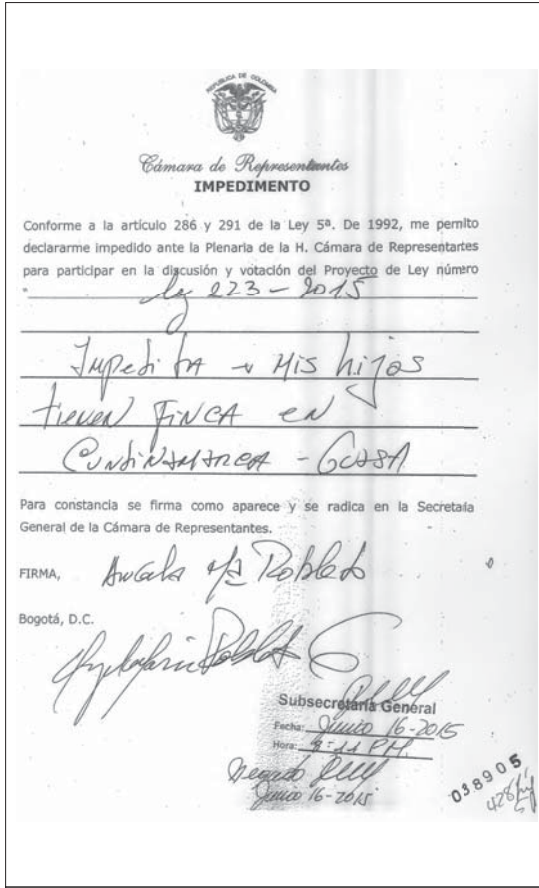 REPUBLICA DE COLOMBIA
Cámara de Representantes
IMPEDIMENTO
Conforme a la artículo 286 y 291 de la Ley 5ª. De 1992, me permito
declararme impedido ante la Plenaria de la H. Cámara de Representantes
para participar en la discusión y votación del Proyecto de Ley número
ley 223 - 2015
Mis hijos
tienen FINCA en
CUNDINAMARCA -
Para constancia se firma como aparece y se radica en la Secretaría
General de la Cámara de Representantes.
FIRMA, Angela Mª Robledo
Bogotá, D.C.
Subsecretaría General
Fecha: Junio 16-2015
Hora: P.M.
Negado
Junio 16-2015
038905